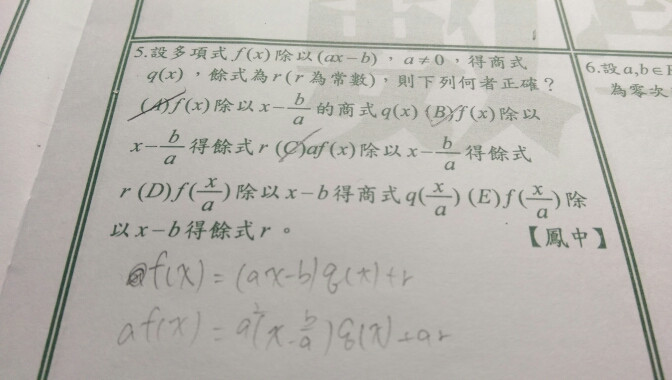 5.設多項式 f(x) 除以 (ax－b)，a≠0，得商式
q(x)，餘式為 r (r 為常數)，則下列何者正確？
(A) f(x) 除以 x－b/a 的商式 q(x) (B) f(x) 除以
x－b/a 得餘式 r (C) af(x) 除以 x－b/a 得餘式
r (D) f(x/a) 除以 x－b 得商式 q(x/a) (E) f(x/a) 除
以 x－b 得餘式 r。
【鳳中】
f(x) = (ax-b)q(x)+r
af(x) = a²(x-b/a)q(x)+ar
6.設 a,b∈
為零次